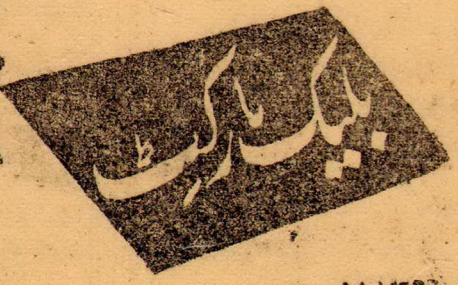 بلیک مارکیٹ